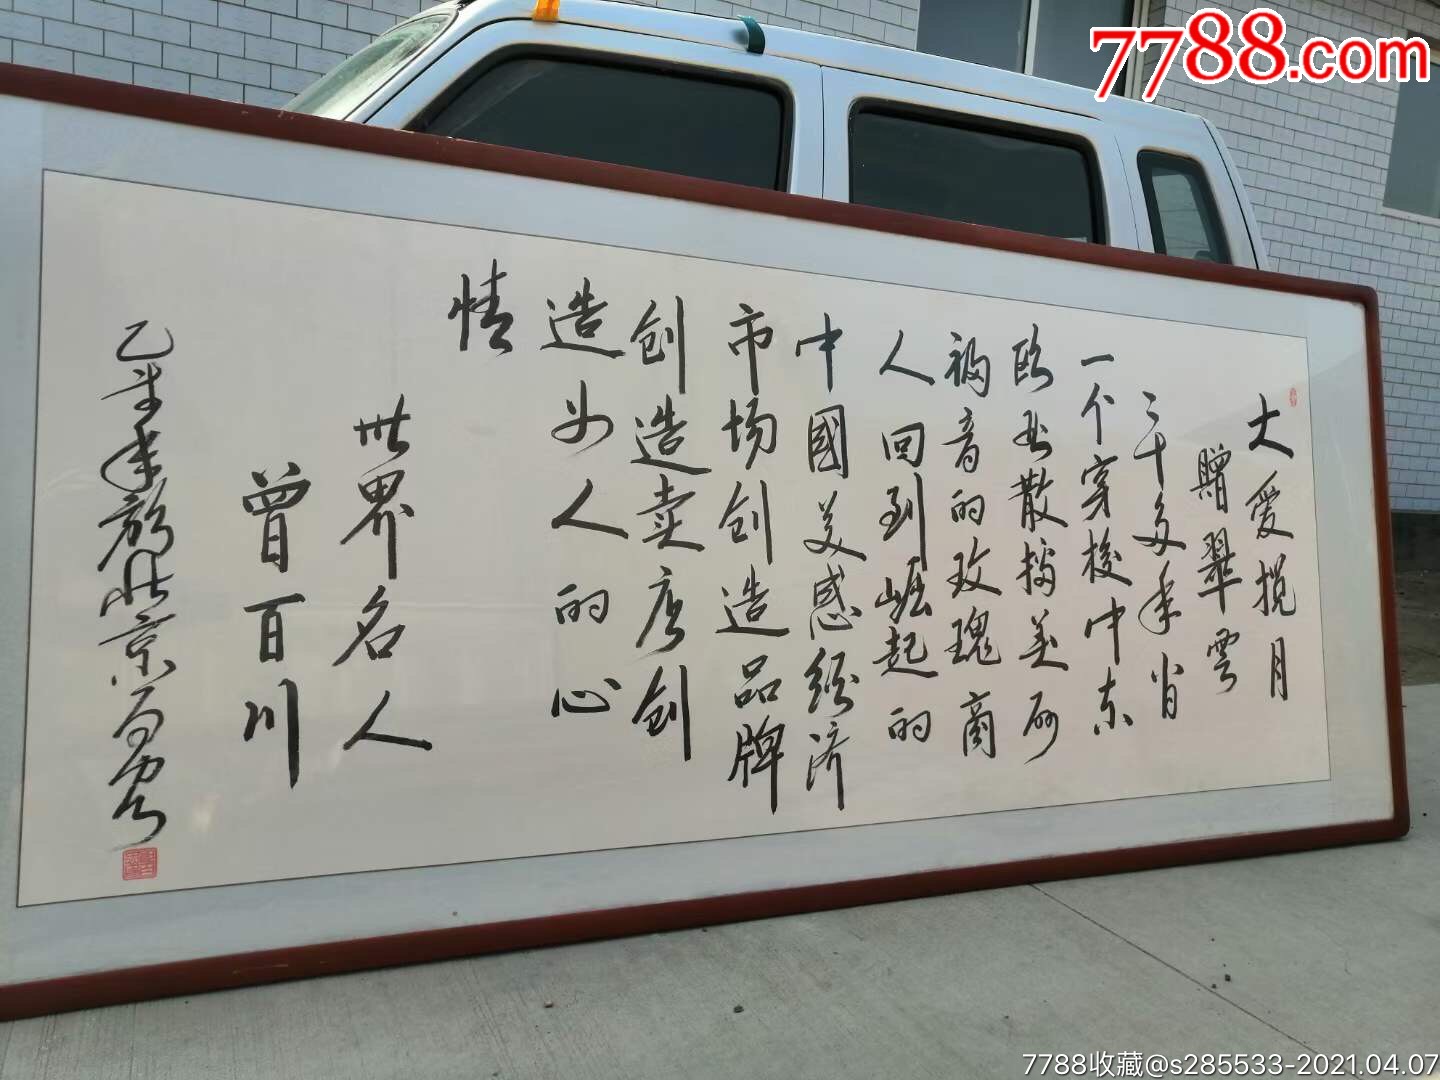 7788.com
大爱揽月
赠翠雲
三十多年前
一个穿梭中东
欧非散播美丽
福音的玫瑰商
人回到崛起的
中國美感经济
市场创造品牌
创造卖店创
造女人的心
情
世界名人
曾百川
乙未年 於北京
7788收藏@s285533-2021.04.07